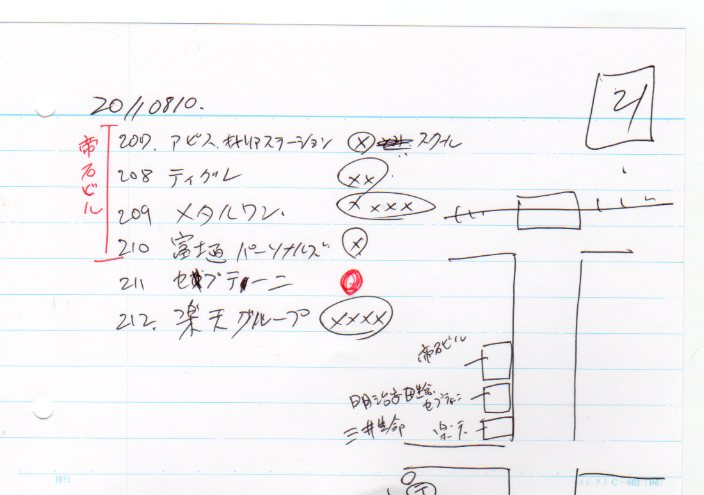 20110810.
21
帝石ビル
207. アビス.キャリアステーション ⓧ スクール
208 ティグレ xx
209 メタルワン. xxxx
210 富士通パーソナルズ x
211 セプテーニ
212. 楽天グループ xxxx
帝石ビル
明治安田生命
セプテーニ
三井生命 楽天